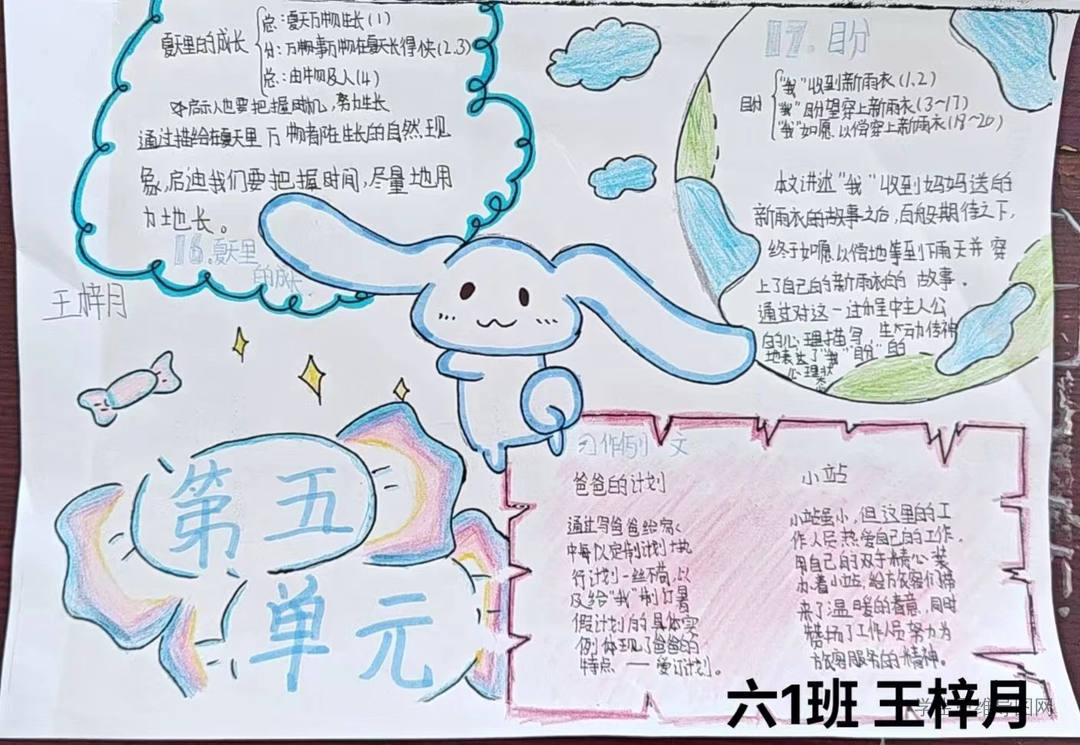 夏天里的成长
总：夏天万物生长（1）
分：万物事万物在夏天长得快（2.3）
总：由牛物及人（4）
启示人也要把握时机，努力生长
通过描绘在夏天里万物都在生长的自然现
象，启迪我们要把握时间，尽量地用
力地长。
16.夏天里
的成长.
17.盼
盼
"我"收到新雨衣（1，2）
"我"盼望穿上新雨衣（3~17）
"我"如愿以偿穿上新雨衣（18~20）
本文讲述"我"收到妈妈送的
新雨衣的故事之后，百般期待之下，
终于如愿以偿地等到下雨天并穿
上了自己的新雨衣的故事.
通过对这一过程中主人公
的心理描写生动传神
地表达了"我""盼"的
心理状
王梓月
第五
单元
习作例文
爸爸的计划
通过写爸爸给家
中每以定制计划执
行计划一丝不苟，以
及给"我"制订暑
假计划的具体实
例体现了爸爸的
特点——爱订计划.
小站
小站虽小，但这里的工
作人员热爱自己的工作.
用自己的双手精心装
办着小站，给方旅客们带
来了温暖的春意，同时
赞扬了工作人员努力为
旅客服务的精神.
六1班 王梓月